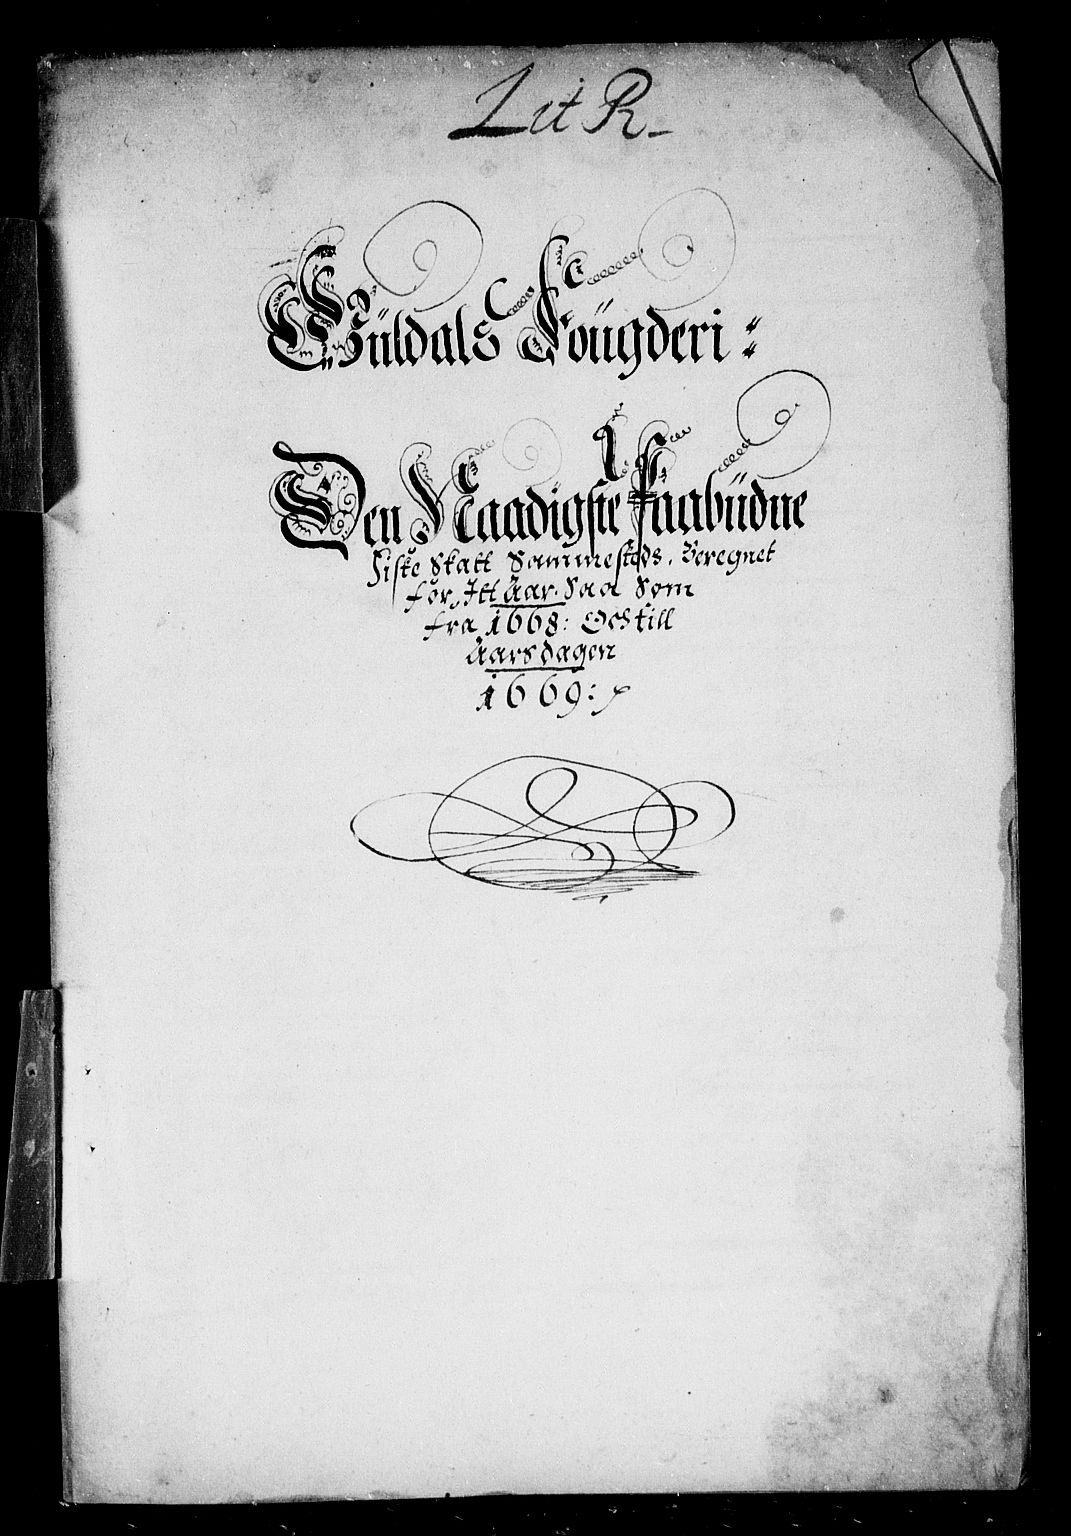 Lit R
Güldals Foügderi :
Den Naadigste Paabüdne
Fiske Skatt Sammesteds, Beregnet
for Itt Aar. Saa Som
fra 1668: Och till
Aarsdagen
1669: